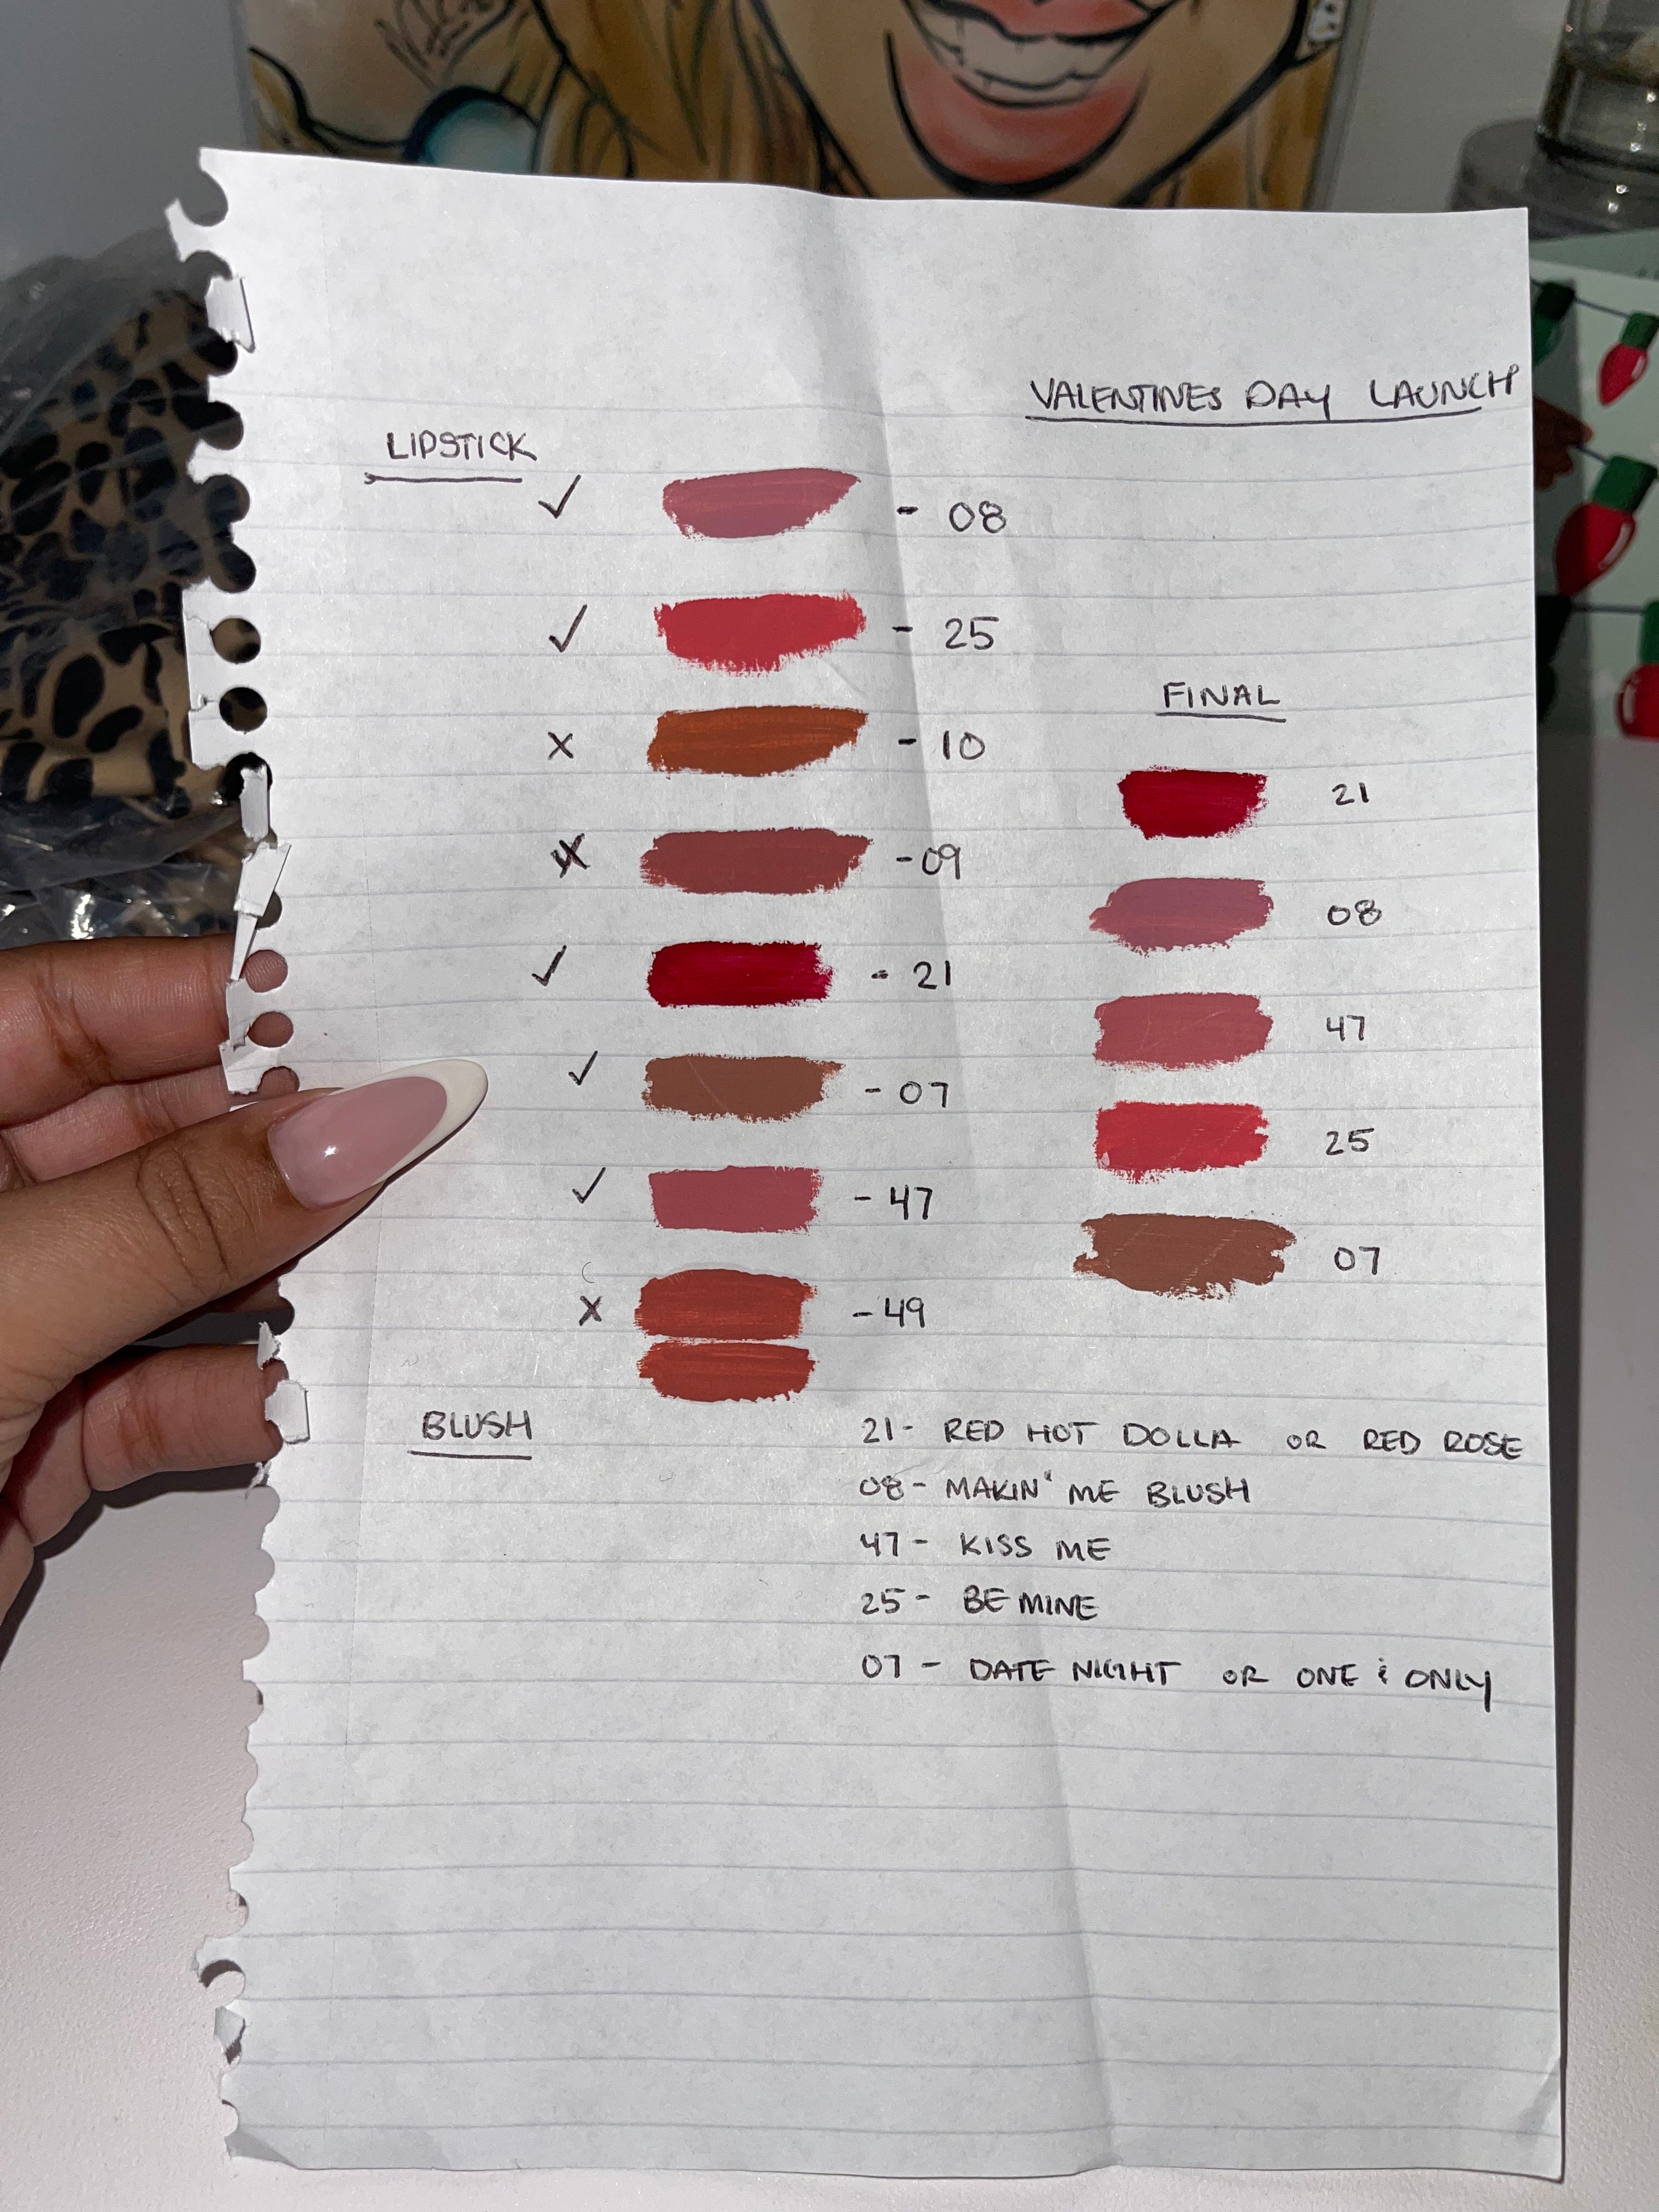 VALENTINES DAY LAUNCH
LIPSTICK
✓ - 08
✓ - 25
x - 10
x - 09
✓ - 21
✓ - 07
✓ - 47
x - 49
FINAL
21
08
47
25
07
BLUSH
21- RED HOT DOLLA OR RED ROSE
08- MAKIN' ME BLUSH
47- KISS ME
25- BE MINE
07- DATE NIGHT OR ONE & ONLY